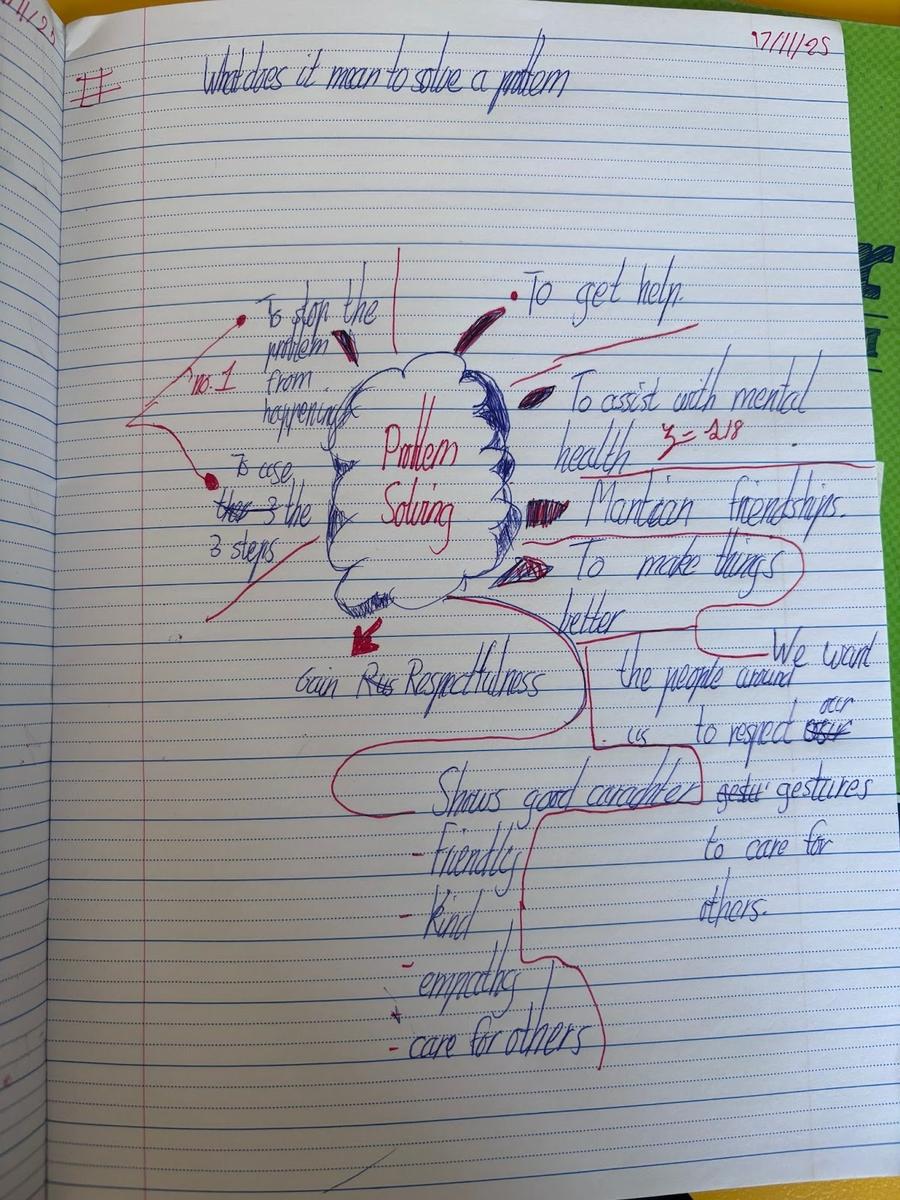 17/11/25
What does it mean to solve a problem
To stop the
problem
from
happening
no. 1
To use
the 3 the
3 steps
Problem
Solving
To get help.
To assist with mental
health
Mantian friendships.
To make things
better
We want
the people around
us to respect our
gestures
to care for
others.
Gain Rus Respectfulness
Shows good caraghter
- Friendly
- kind
- empathy
- care for others